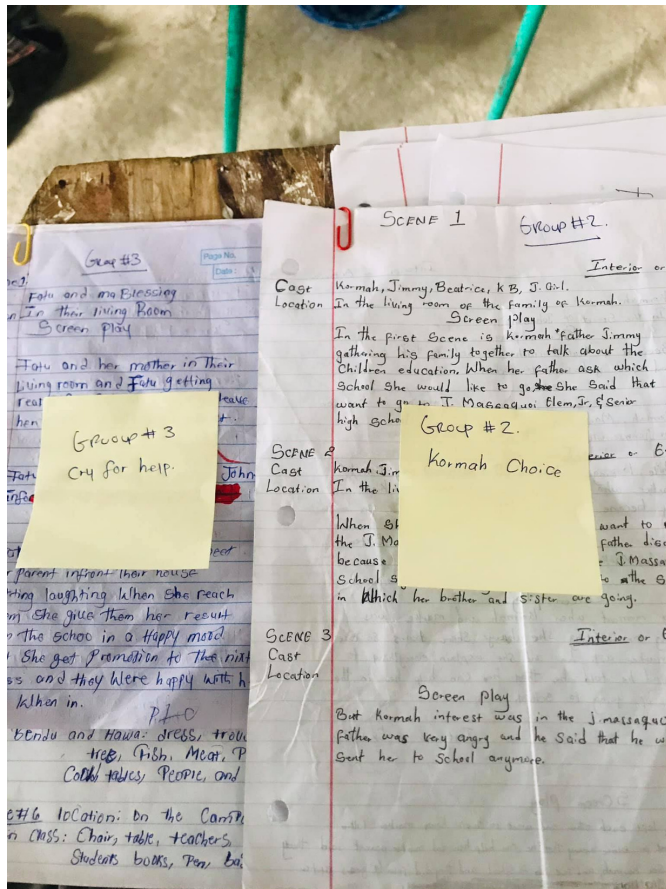 Group #3
Page No.
Date:
Fatu and ma Blessing
In their living Room
Screen play
Fatu and her mother in their
living room and Fatu getting
GRUOUP # 3
Cry for help.
John
parent infront their house
laughting When She reach
She give them her result
the schoo in a Happy mood
She get Promotion to the nixt
and they Were happy with h
When in.
bendu and Hawa: dress, trou
tree, Fish, Meat, P
tables, People, and
#6 location: On the Camp
Class: Chair, table, teachers,
Students books, Pen, ba
SCENE 1
GROUP #2.
Interior or
Cast Kormah, Jimmy, Beatrice, K B, J. Girl.
Location In the living room of the family of Kormah.
Screen play
In the first Scene is Kormah father Jimmy
gathering his family together to talk about the
Children education. When her father ask which
School She would like to go She Said that
want to go to J. Massaquoi Elem, Jr, & Senior
high Schoo
GROUP #2.
Kormah Choice
SCENE 2
Cast Kormah, J.m
Location In the li
When Sh want to
the J. Ma father disa
because J. Massa
School S to the S
in Which her brother and Sister are going.
SCENE 3
Interior or E
Cast
Location
Screen play
But Kormah interest was in the J. massaquo
father was very angry and he said that he w
Sent her to School anymore.